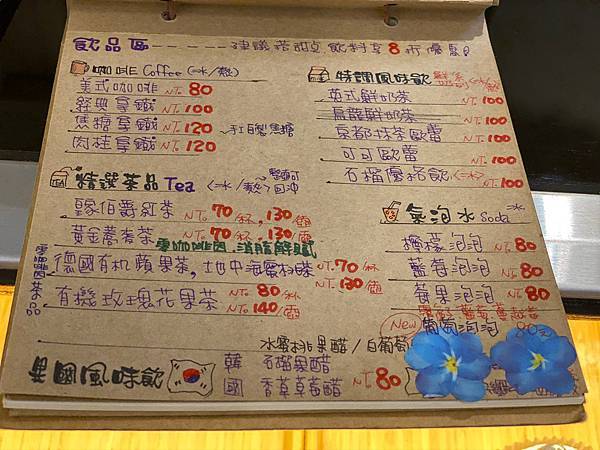 飲品區 - - - - - 建議搭甜点飲料享8折優惠!
咖啡 Coffee (冰/熱)
美式咖啡 NT. 80
經典拿鐵 NT. 100
焦糖拿鐵 NT. 120 手工自製焦糖
肉桂拿鐵 NT. 120
精選茶品 Tea (冰/熱) 壺可回沖
皇家伯爵紅茶 NT. 70/杯, 130/壺
黃金蕎麥茶 NT. 70/杯, 130/壺
零咖啡因 消脂解膩
零咖啡因茶品
德國有机蘋果茶, 地中海蜜桃 NT. 70/杯 NT. 130/壺
有機玫瑰花果茶 NT. 80/杯 NT. 140/壺
特調風味飲
英式鮮奶茶 NT. 100
烏龍鮮奶茶 NT. 100
京都抹茶歐蕾 NT. 100
可可歐蕾 NT. 100
石榴優格飲 <冰> NT. 100
氣泡水 Soda 冰
檸檬泡泡 NT. 80
藍莓泡泡 NT. 80
莓果泡泡 NT. 80
New 葡萄泡泡 80
水蜜桃果醋 / 白葡萄
異國風味飲 韓國 石榴果醋
香草草莓醋 NT. 80